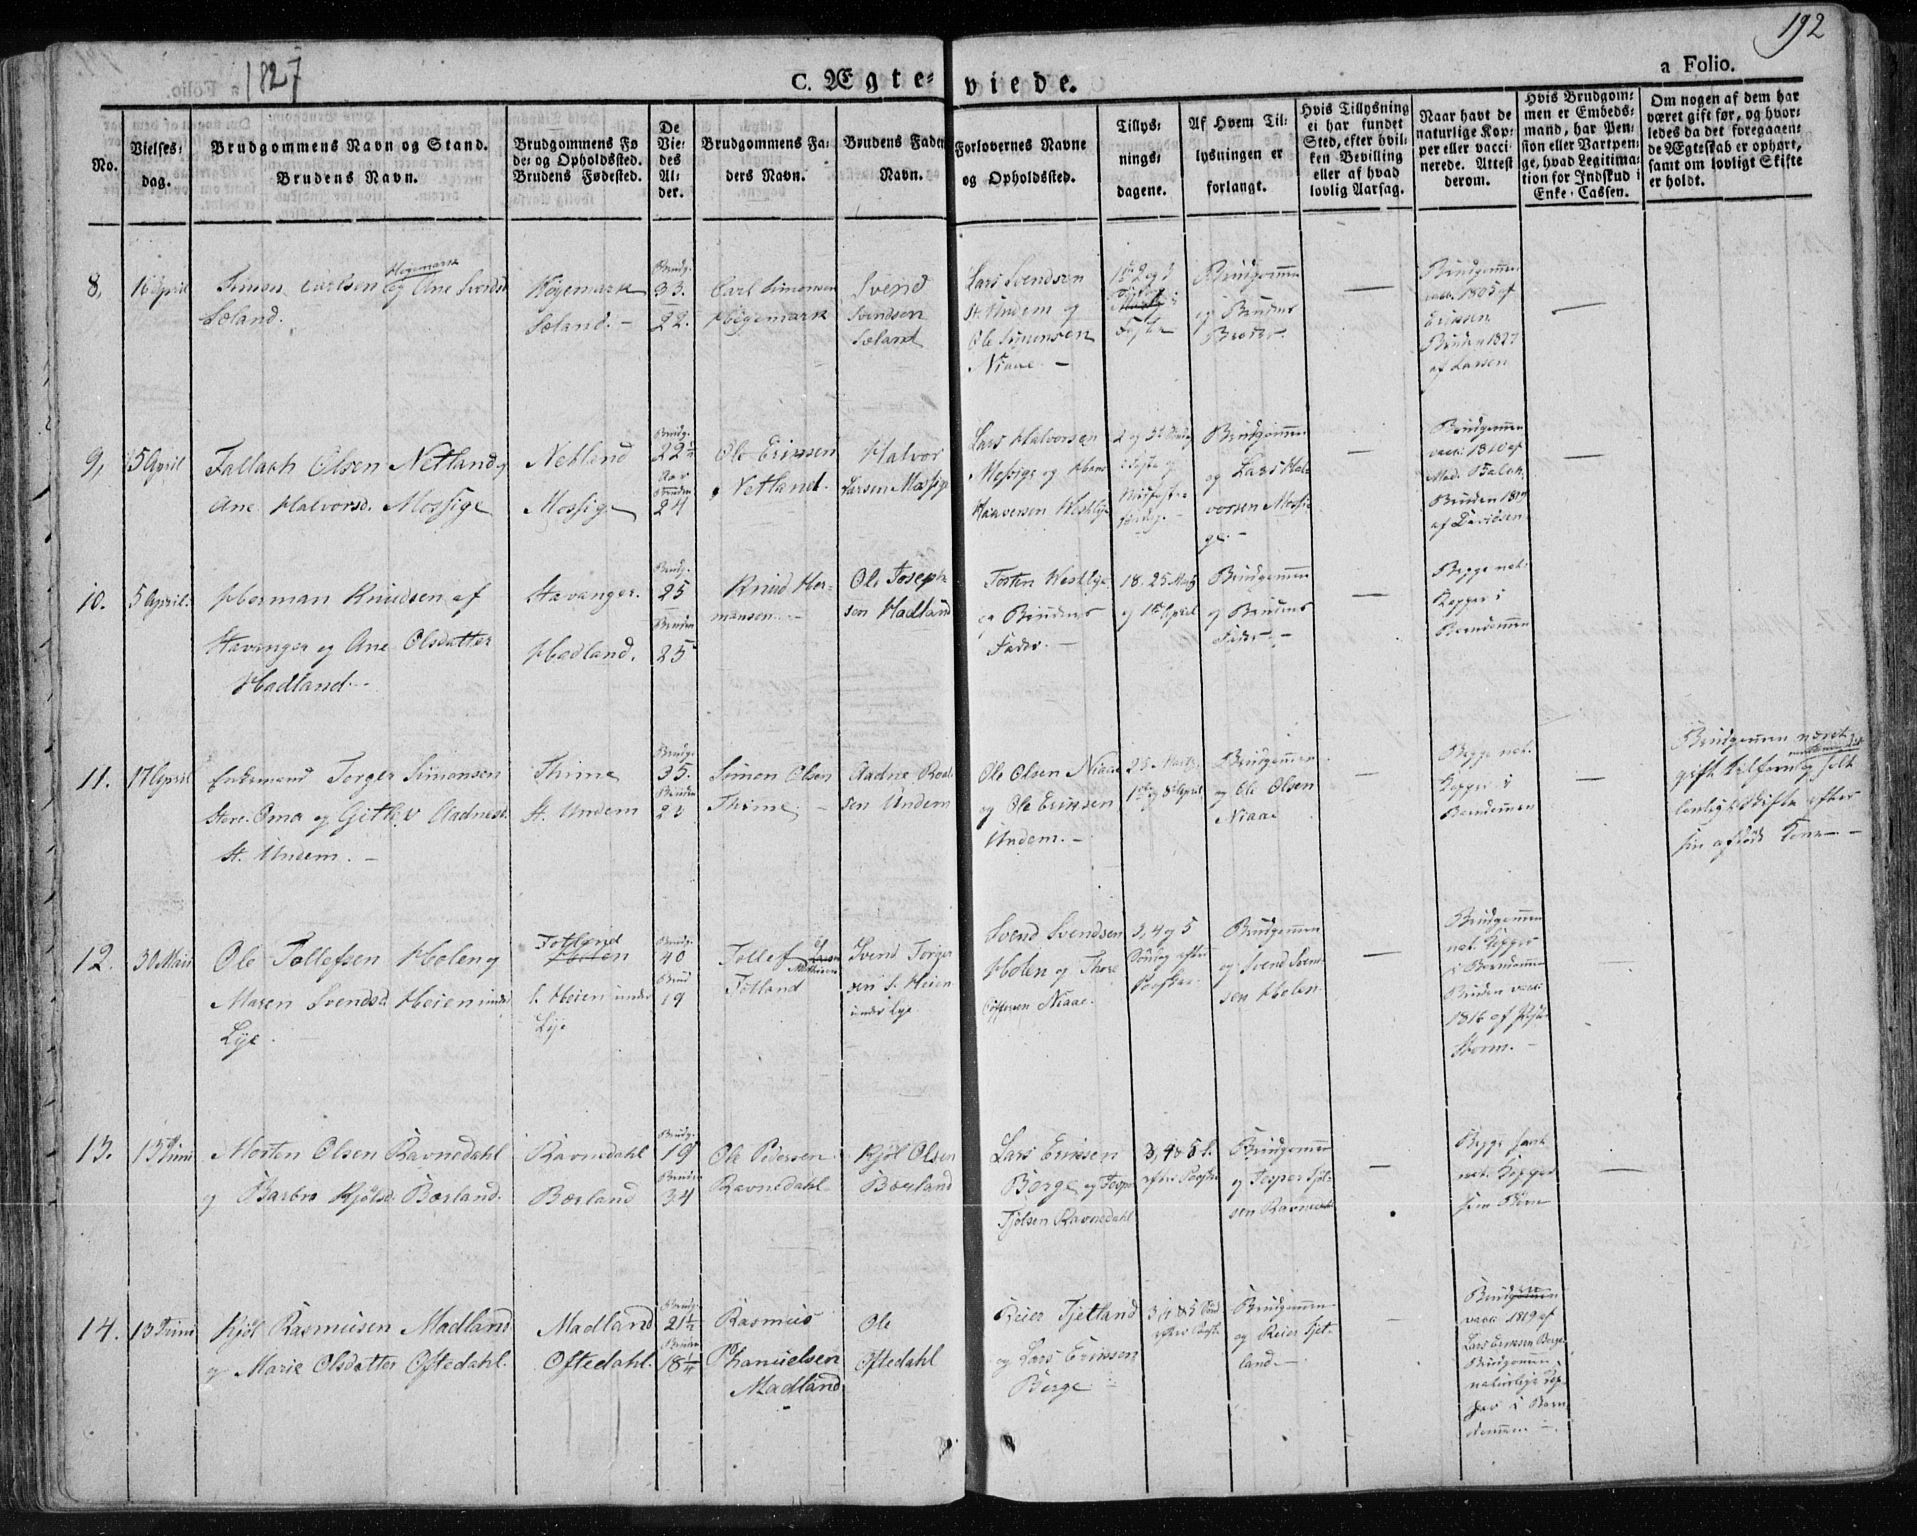 1827
192
C. Ægte-viede.
a Folio.
No.
Vielses-dag.
Brudgommens Navn og Stand.
Brudens Navn.
Brudgommens Fø
de- og Opholdssted.
Brudens Fødested.
De
Vie-
des
Al-
der.
Brudgommens Fa-
ders Navn.
Brudens Faders
Navn.
Forlovernes Navne
og Opholdssted.
Tillys-
nings-
dagene.
Af Hvem Til-
lysningen er
forlangt.
Hvis Tillysning
ei har fundet
Sted, efter hvil-
ken Bevilling
eller af hvad
lovlig Aarsag.
Naar havt de
naturlige Kop-
per eller vacci-
nerede. Attest
derom.
Hvis Brudgom-
men er Embeds-
mand, har Pen-
sion eller Vartpen-
ge, hvad Legitima-
tion for Indskud i
Enke-Cassen.
Om nogen af dem har
været gift før, og hvor-
ledes da det foregaaen-
de Ægteskab er ophørt,
samt om lovligt Skifte
er holdt.
8,
16 April
Simon Carlsen Høgemark og Ane Svendsd.
Sæland.
Høgemark
Sæland. -
Brudg.
33.
22.
Carl Simonsen
Høgemark
Svend
Svendsen
Sæland
Lars Svendsen
St. Undem og
Ole Simensen
Niaae. -
1ste 2 og 3
Faste
Brudgommen
og Brudens
Broder.
Brudgommen
vacc. 1805 af
Eriksen
Bruden 1827
af Larsen
9,
5 April
Tallach Olsen Netland og
Ane Halvorsd. Mossige
Netland
Mossige
Brudg.
22½
Aar
Bruden
24
Ole Erichsen
Netland.
Halvor
Larsen Mossige
Lars Halvorsen
Mossige og Hans
Haaversen Westlye
2 og 3d
i Faste og
Midfaste
Brudgommen
og Lars Hal-
vorsen Mossi-
ge. -
Brudgommen
vacc. 1810 af
Mad. Balck.
Bruden
af Davidsen
10.
5 April.
Herman Knudsen af
Stavanger og Ane Olsdatter
Hadland. -
Stavanger.
Hadland.
Brudg.
25
Bruden
25
Knud Her-
mansen. -
Ole Joseph-
sen Hadland
Torsten Westlye
og Brudens
Fader. -
18. 25 Marts
og 1ste April
Brudgommen
og Brudens
Fader. -
Begge nat.
Kopper i
Barndommen
11.
17 April
Enkemand Torger Simonsen
Store Oma og Gitlev Aadnesd.
St. Undem. -
Thime
St. Undem
Brudg.
35.
Bruden
23
Simon Olsen
Thime. -
Aadne Roal-
sen Undem
Ole Olsen Niaae
og Ole Erichsen
Undem. -
25 Marts
1ste og 8de April
Brudgommen
og Ole Olsen
Niaae
Begge nat.
Kopper i
Barndommen
Brudgommen været
gift tilforn og holdt
lovligt Skifte efter
sin afdøde Kone -
12.
30 Mai
Ole Tollefsen Holen og
Maren Svendsd. Heien under
Lye. -
Totland
Holen
l. Heien under
Lye
Brudg.
40
Brud
19
Tollef
Totland
Svend Torger-
sen l. Heien
under Lye
Svend Svendsen
Holen og Thore
Niaae.
3, 4 og 5
Søndag efter
Paaske.
Brudgommen
og Svend Svend-
sen Holen
Brudgommen
nat. Kopper
i Barndommen
Bruden vacc.
1816 af
Storm. -
13.
13 Juni
Morten Olsen Ravnedahl
og Barbro Kjølsd. Børland.
Ravnedahl
Børland
Brudg.
19
Bruden
34
Ole Pedersen
Ravnedahl
Kjøl Olsen
Børland
Lars Eriksen
Berge og Jesper
Tjølsen Ravnedahl
3, 4 & 5 S.
efter Paaske
Brudgommen
og Jesper Tjøl-
sen Ravnedahl
Begge havt
nat. Kopper
som Børn
14.
13 Juni
Kjøl Rasmusen Madland
og Marie Olsdatter Oftedahl.
Madland
Oftedahl.
Brudg.
21½
Bruden
18¼
Rasmus
Phanuelsen
Madland
Ole
Oftedahl
Reier Tjetland
og Lars Eriksen
Berge -
3, 4 & 5 Sønd
efter Paaske
Brudgommen
og Reier Tjet-
land. -
Bruden
vacc. 1819 af
Lars Eriksen Berge
Brudgommen
naturlige Kop-
per i Barn-
dommen -